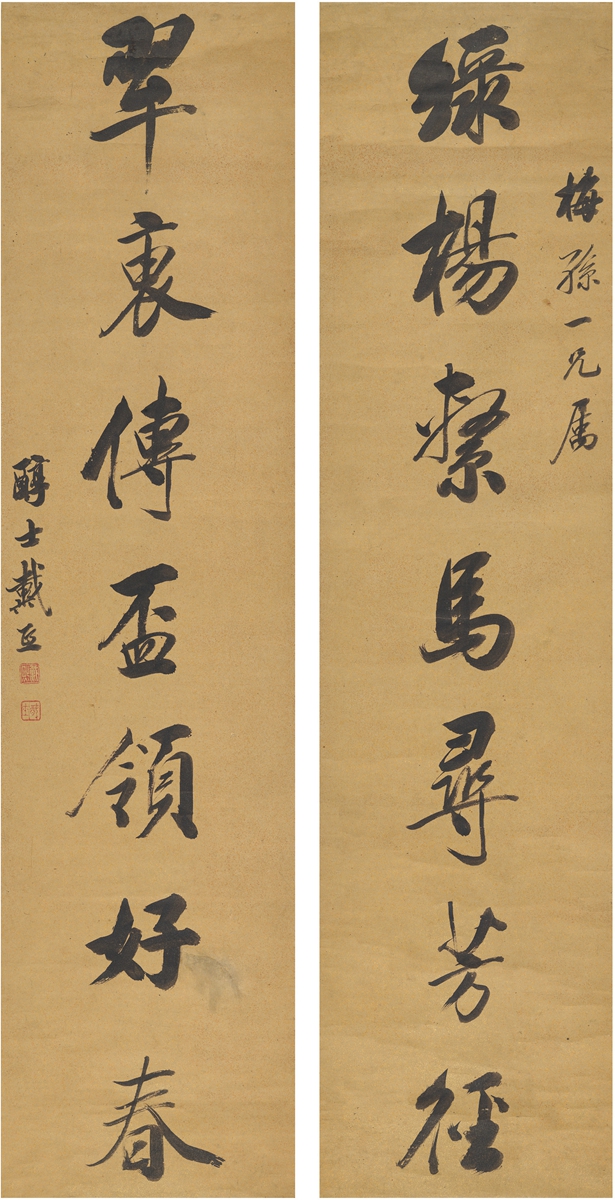 梅孫一兄属
綠楊繫馬尋芳徑
翠裏傳盃領好春
醇士戴熙